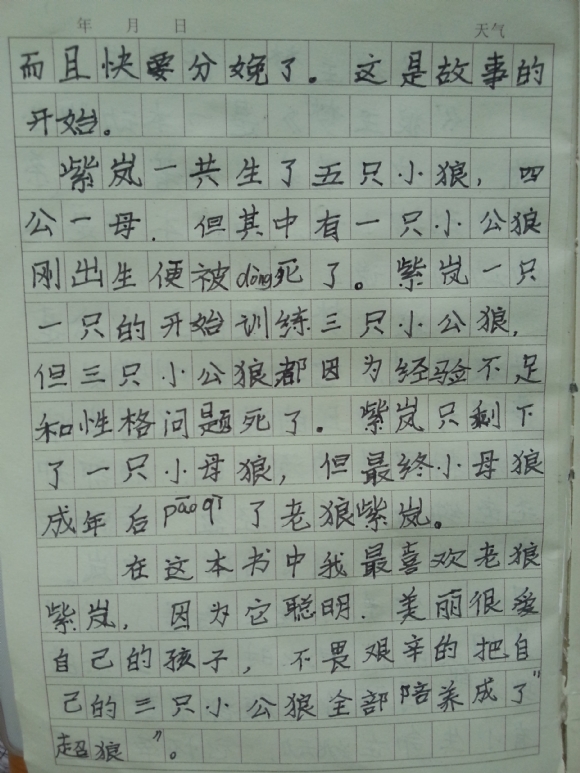 年 月 日 天气
而且快要分娩了。这是故事的
开始。
紫岚一共生了五只小狼,四
公一母.但其中有一只小公狼
刚出生便被dòng死了。紫岚一只
一只的开始训练三只小公狼,
但三只小公狼都因为经验不足
和性格问题死了。紫岚只剩下
了一只小母狼,但最终小母狼
成年后pāo qì了老狼紫岚。
在这本书中我最喜欢老狼
紫岚,因为它聪明.美丽很爱
自己的孩子,不畏艰辛的把自
己的三只小公狼全部陪养成了"
超狼"。